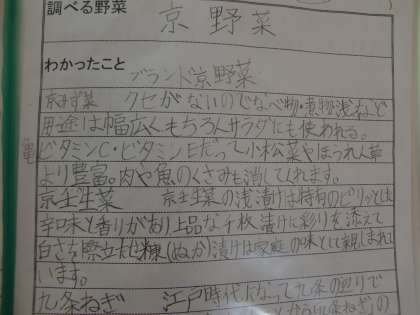 調べる野菜
京野菜
わかったこと
ブランド京野菜
京みず菜 クセがないのでなべ物・煮物浅など
用途は幅広くもちろんサラダにも使われる。
ビタミンC・ビタミンEだって小松菜やほうれん草
より豊富。肉や魚のくさみも消してくれます。
京壬生菜 京壬生菜の浅漬けは特有のピリッとした
辛口味と香りがあり上品な千枚漬けに彩りを添えて
白さを際立たせ糠(ぬか)漬けは家庭の味として親しまれて
います。
九条ねぎ 江戸時代になって九条の辺りで